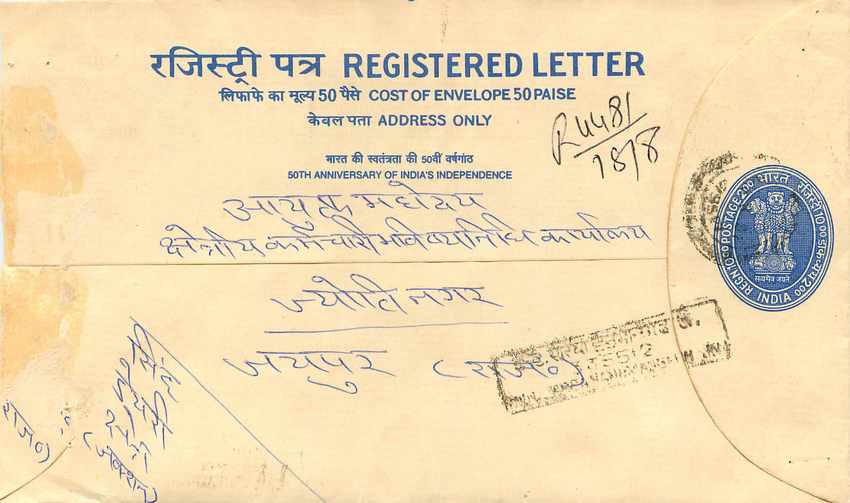 रजिस्ट्री पत्र REGISTERED LETTER
लिफाफे का मूल्य 50 पैसे COST OF ENVELOPE 50 PAISE
केवल पता ADDRESS ONLY
भारत की स्वतंत्रता की 50वीं वर्षगांठ
50TH ANNIVERSARY OF INDIA'S INDEPENDENCE
R 4481
18/8
आयुक्त महोदय
क्षेत्रीय कर्मचारी भविष्य निधि कार्यालय
ज्योति नगर
जयपुर (राज०)
REGN 10.00 POSTAGE 2.00 भारत रजिस्ट्री 10.00 डाक-व्यय 2.00
सत्यमेव जयते
INDIA
सिंह
(जंक्शन)
राज०)